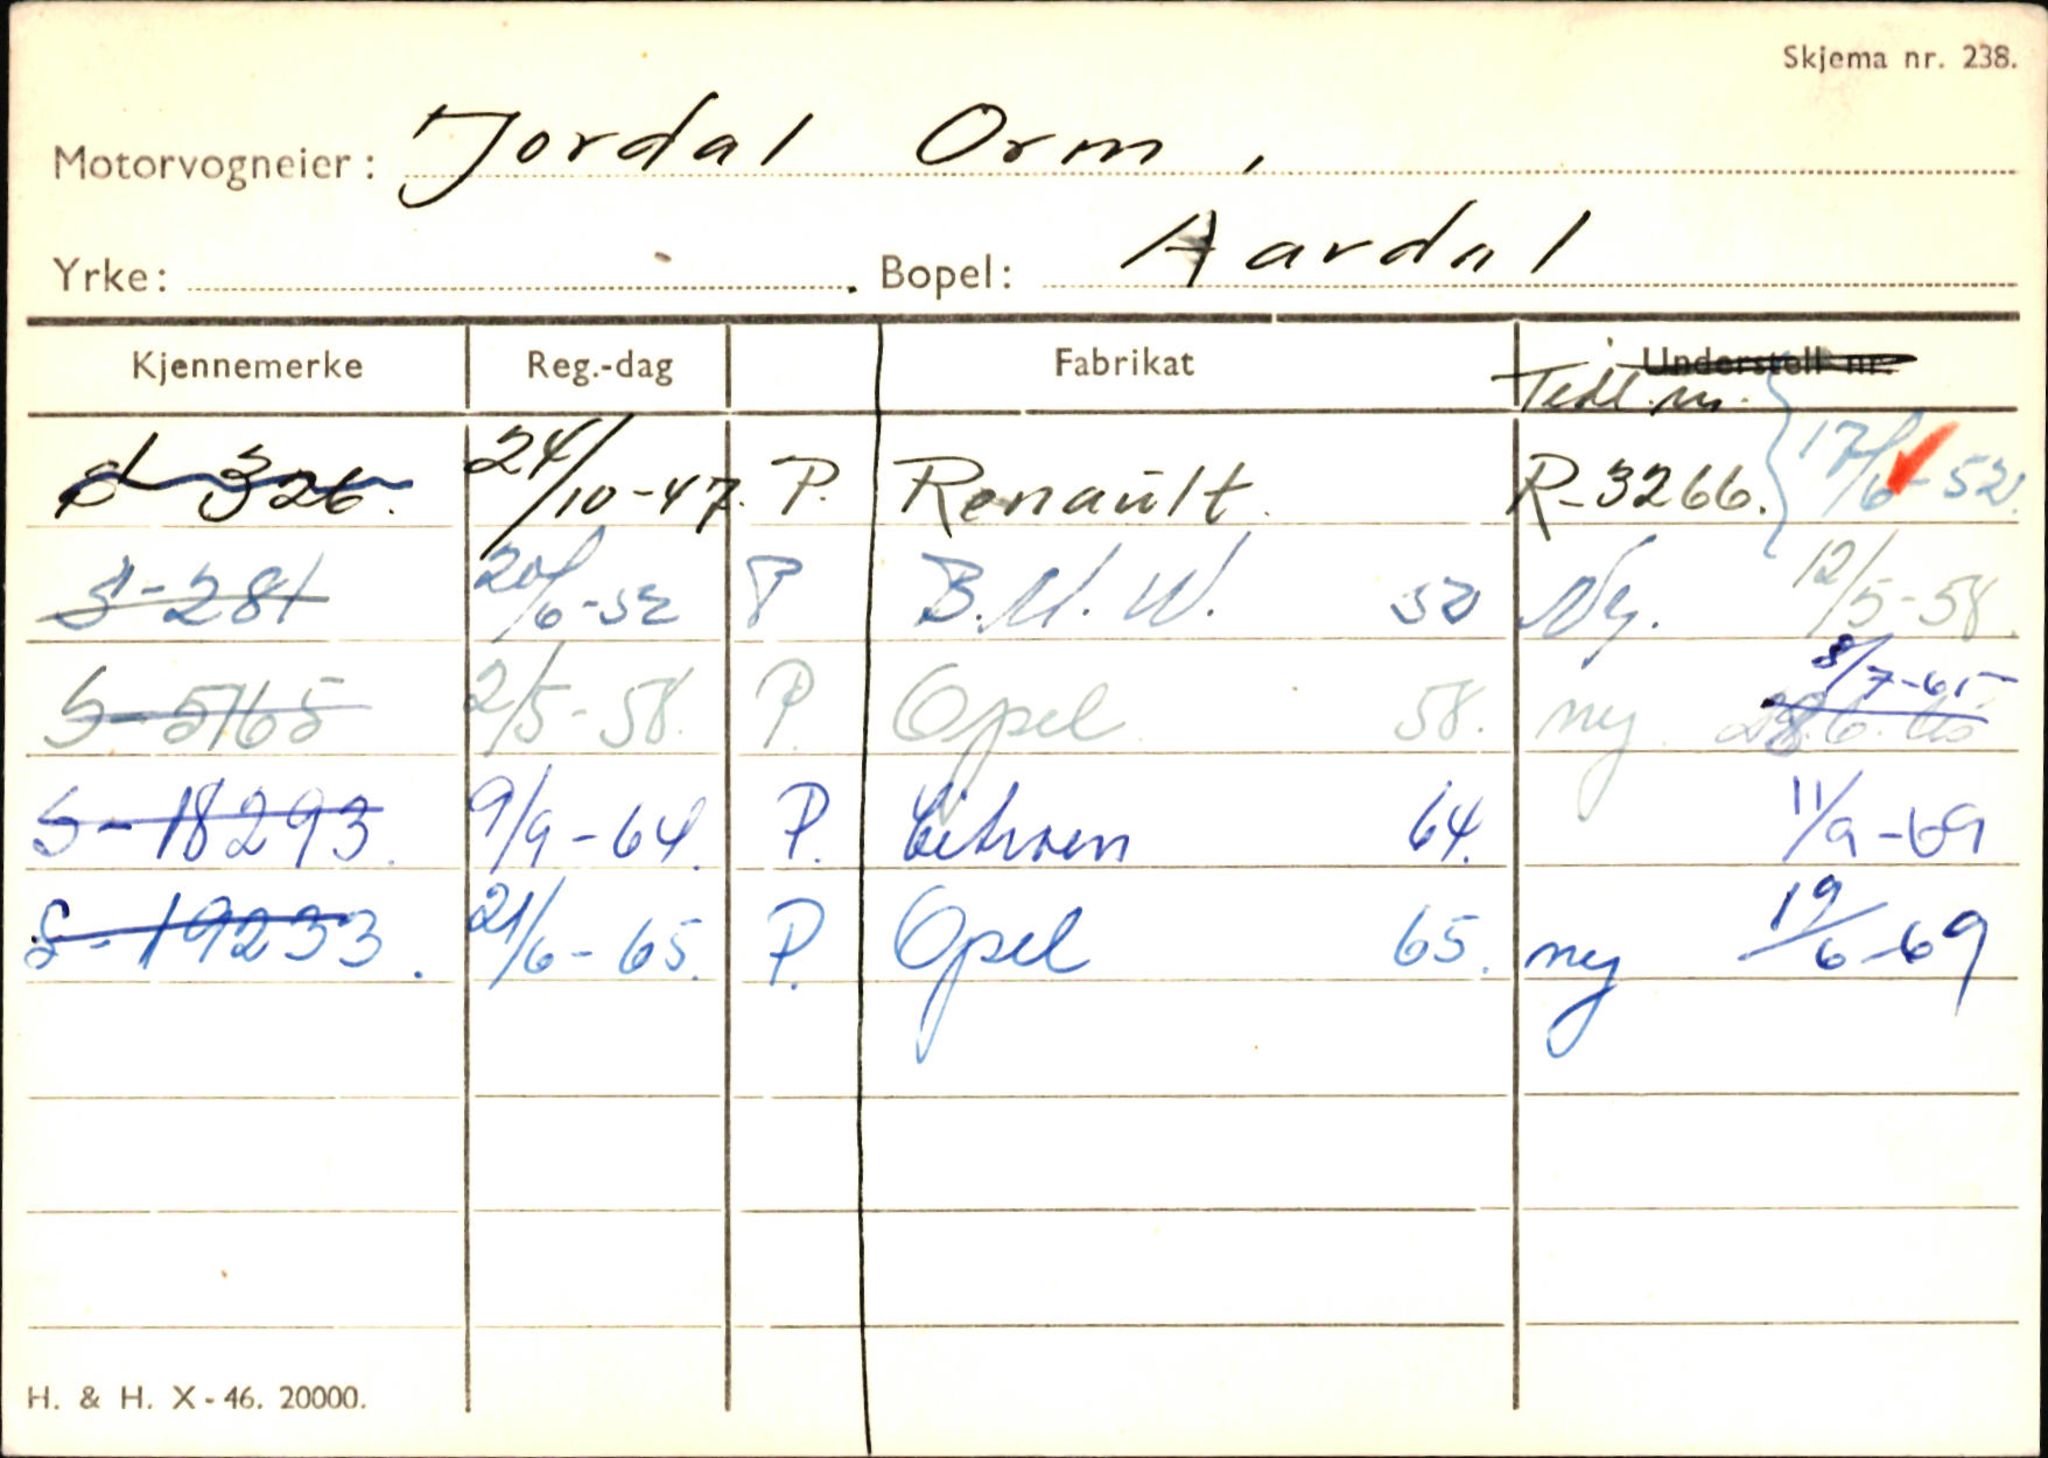 Skjema nr. 238.
Motorvogneier: Jordal Orm,
Yrke: Bopel: Aardal
Kjennemerke Reg.-dag Fabrikat Understell nr.
Tidl. nr.
S 326. 24/10-47. P. Renault. R-3266. 17/6-52.
S-281 20/6-52 P B.M.W. 52 Ny. 12/5-58.
S-5165 2/5-58. P. Opel 58. ny 8/7-65
28.6.65
S-18293. 9/9-64. P. Citroen 64. 11/9-69
S-19233. 21/6-65. P. Opel 65. ny 19/6-69
H. & H. X-46. 20000.